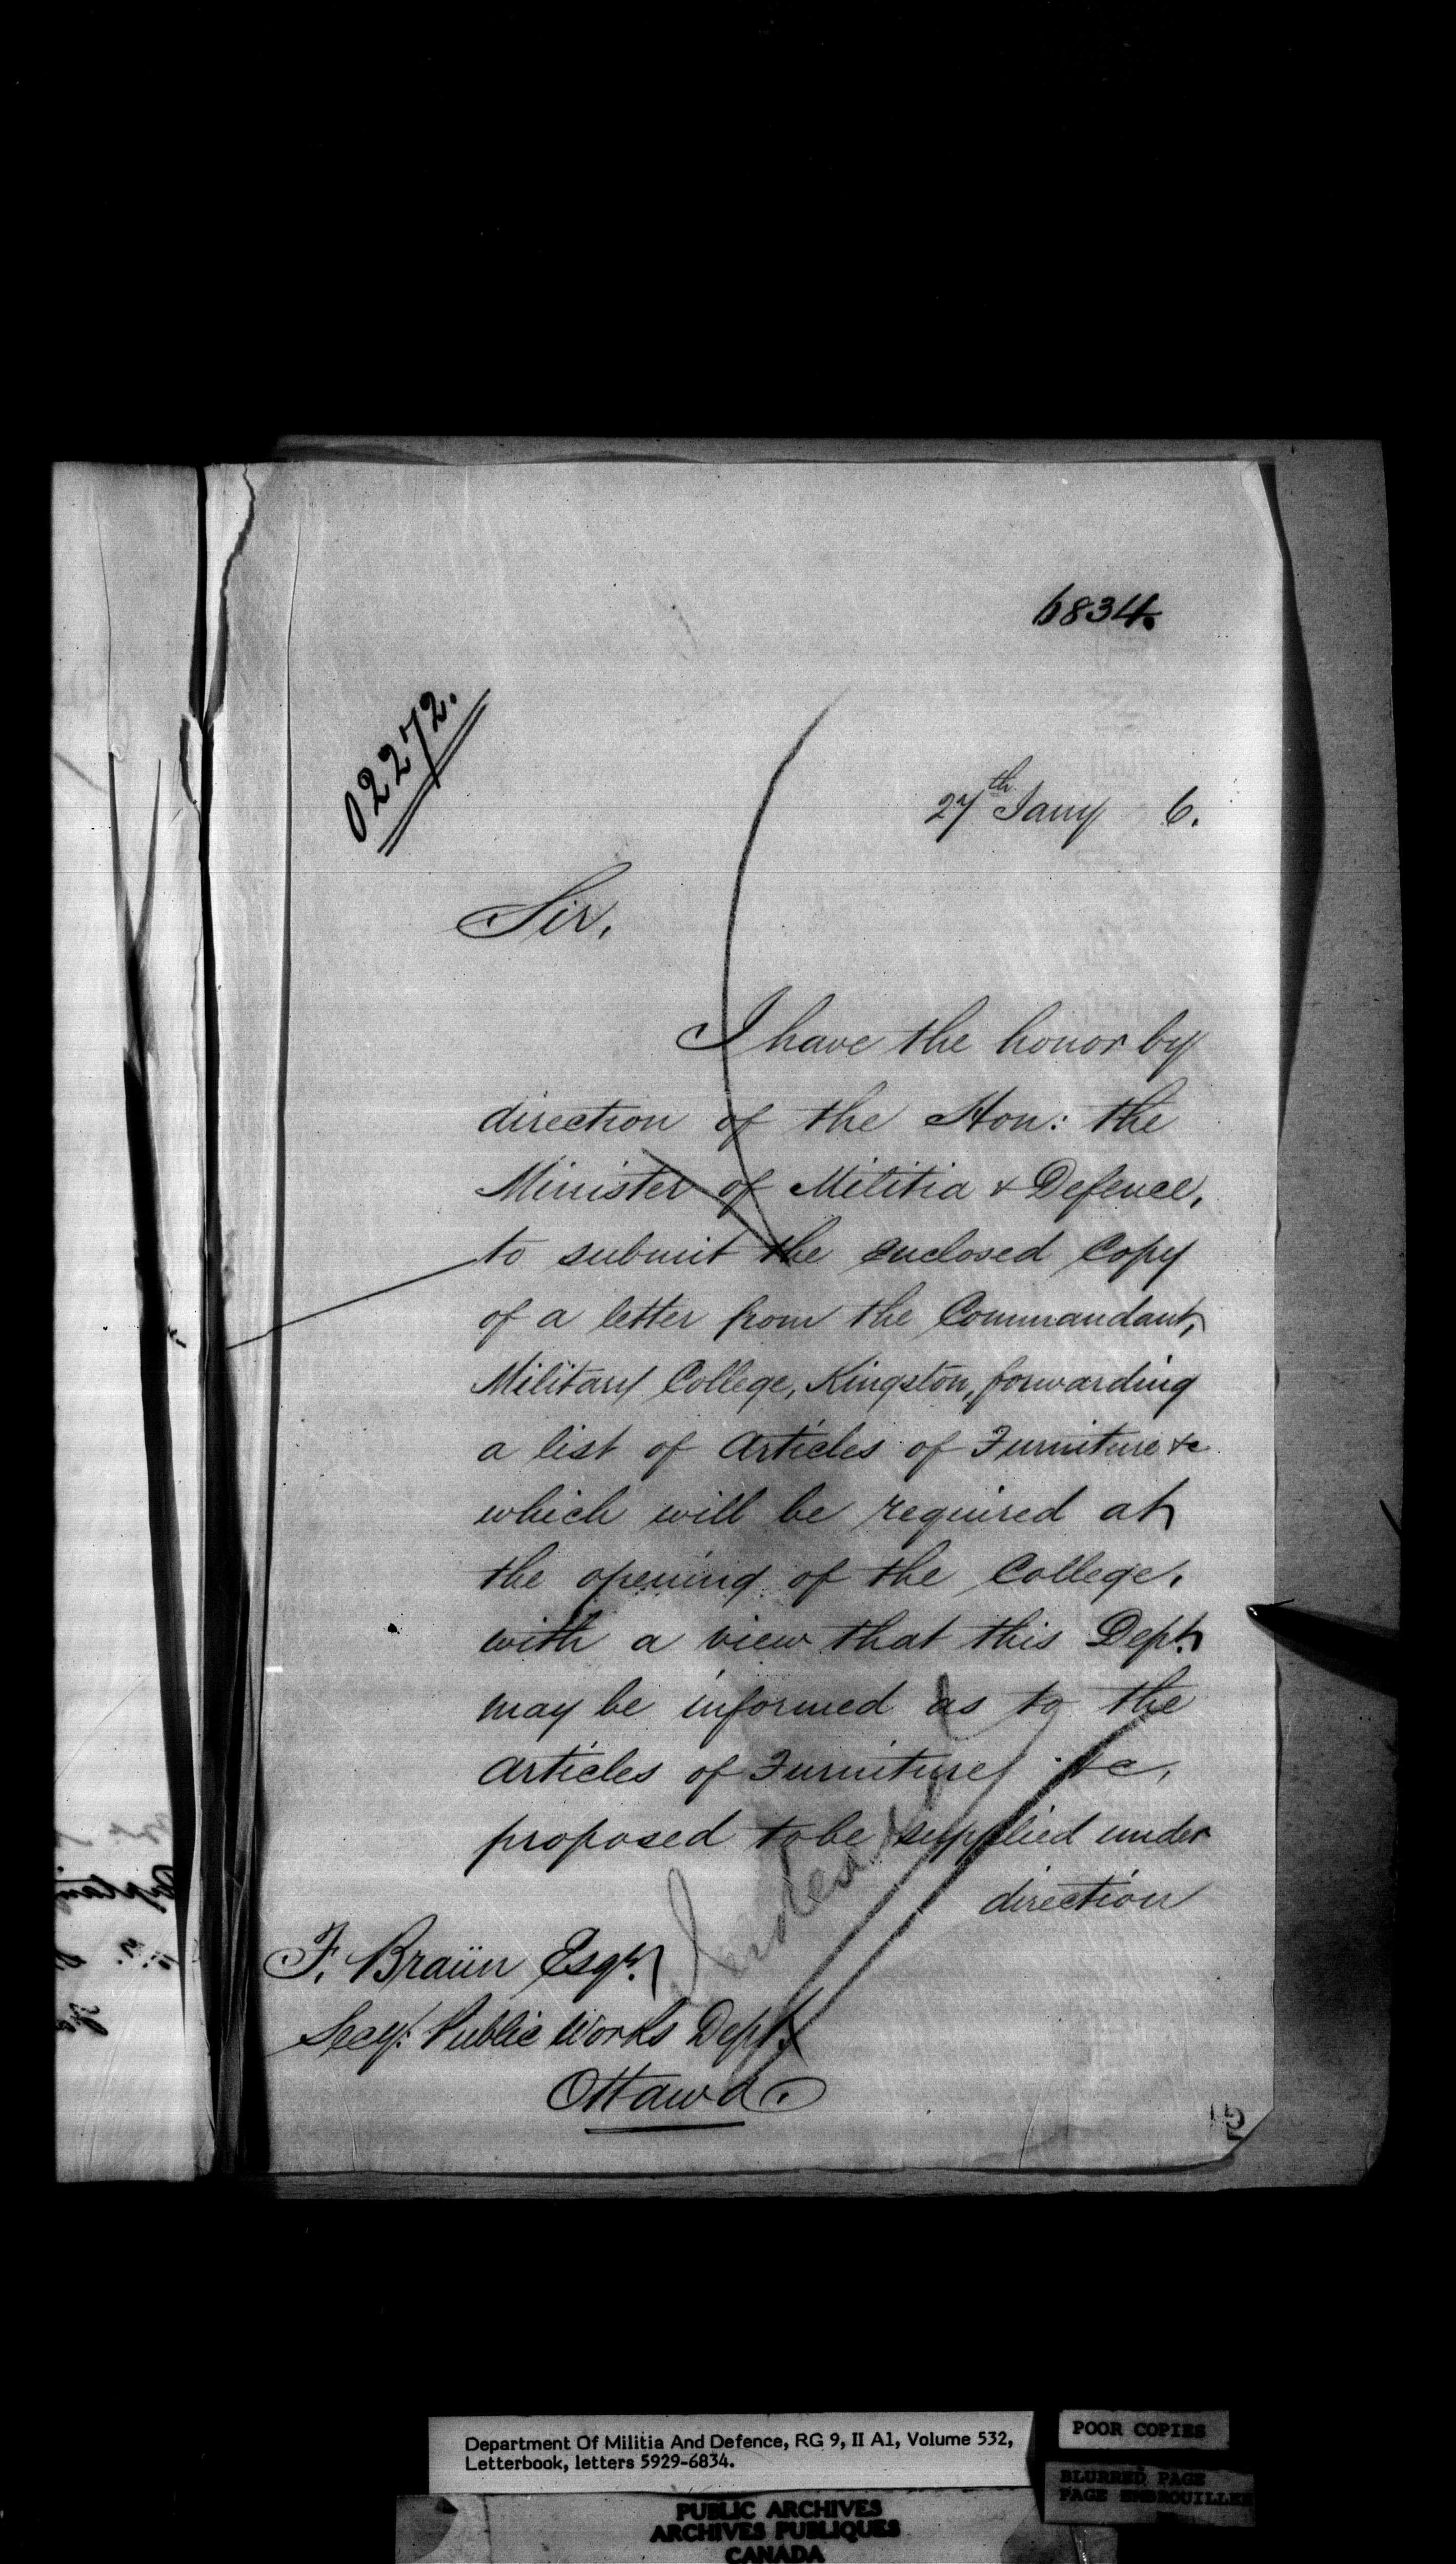 6834.
02272.
27th Jany 6.
Sir,
I have the honor by
direction of the Hon: the
Minister of Militia & Defence,
to submit the enclosed Copy
of a letter from the Commandant,
Military College, Kingston, forwarding
a list of Articles of Furniture &c
which will be required at
the opening of the College.
with a view that this Dept.
may be informed as to the
Articles of Furniture &c,
proposed to be supplied under
direction
F. Braün Esqr.
Secy: Public Works Dept.
Ottawa.
Department Of Militia And Defence, RG 9, II A1, Volume 532,
Letterbook, letters 5929-6834.
POOR COPIES
BLURRED PAGE
PAGE EMBROUILLEE
PUBLIC ARCHIVES
ARCHIVES PUBLIQUES
CANADA